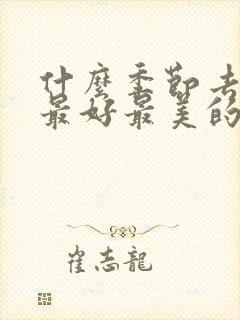 什麼季節去
最好最美的
崔志龍